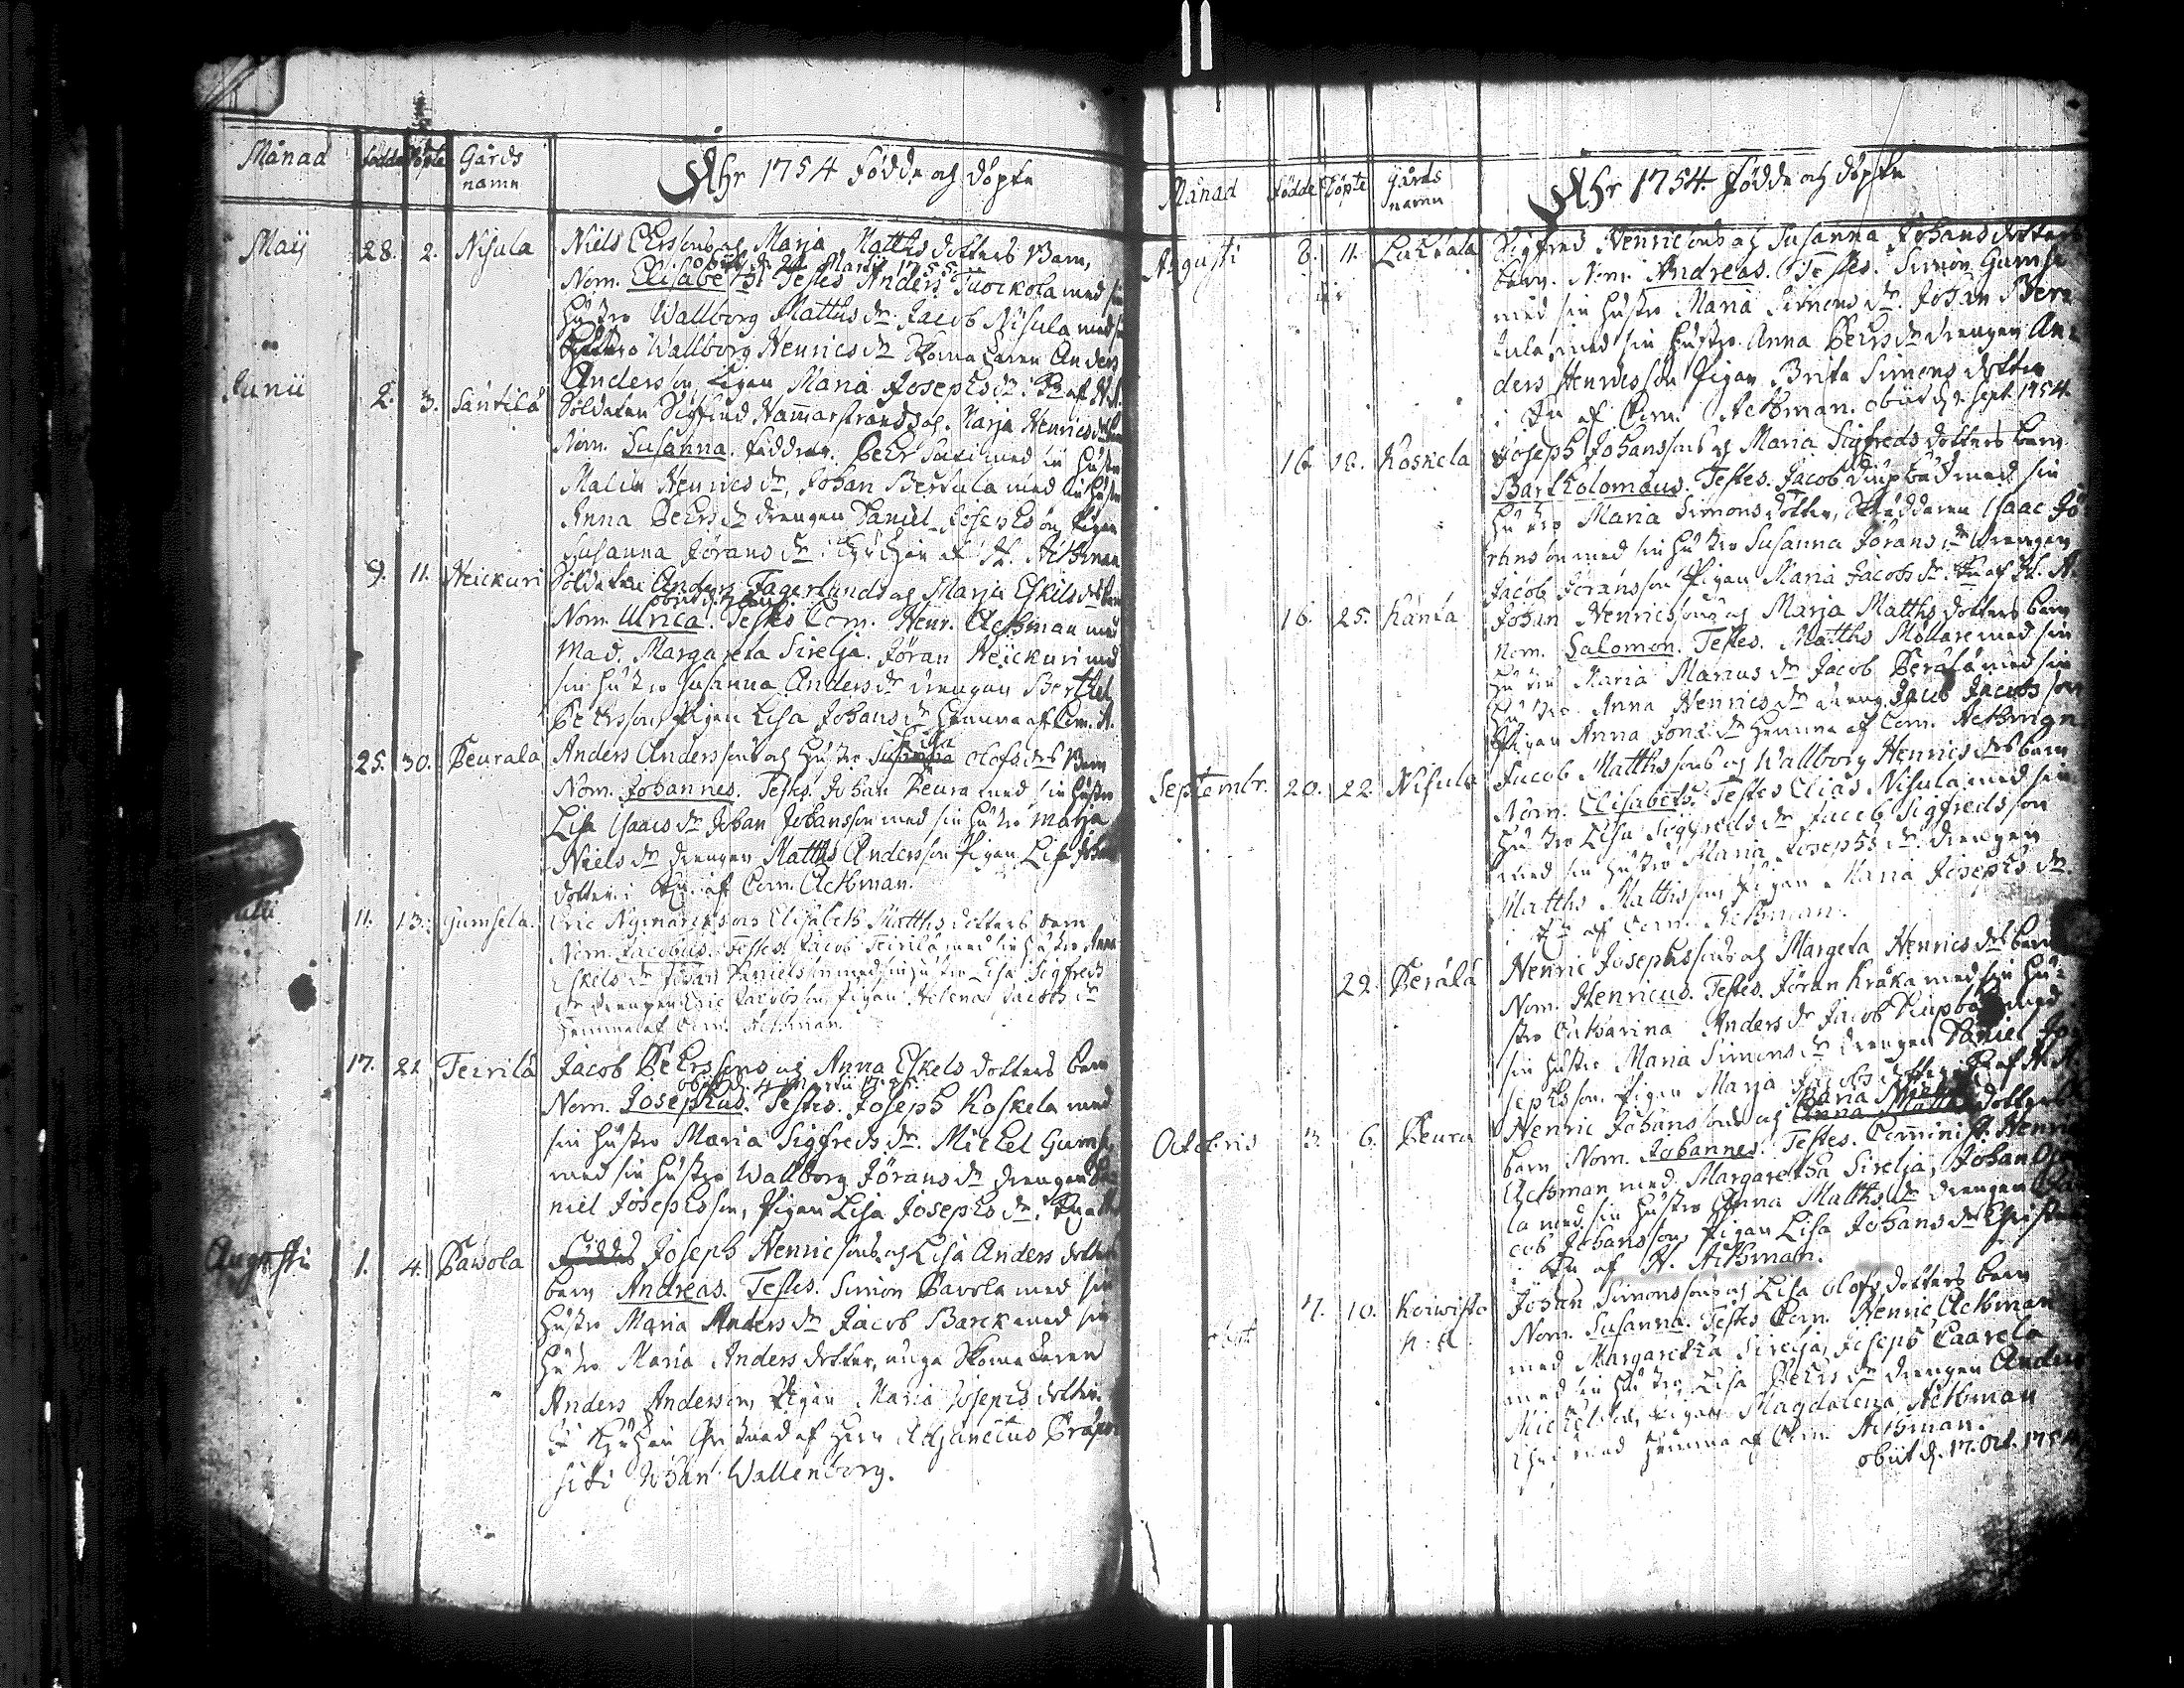 Månad födde Döpte Gårds namn
Åhr 1754 födde och döpte
Maij 28. 2. Nisula Niels Ersons och Marja Matths dotters barn,
obiit d. 24 Martii 1755
Nom. Elisabeth Testes Anders Tuorkola med sin
hustro Wallborg Matths dr Jacob Nisula med sin
hustro Wallborg Henrics dr Skomakaren Anders
Anderson Pigan Maria Josephs dr
Junii 2. 3. Santila Soldaten Sigfred Hammarstrands och Marja Henrics
Nom. Susanna. faddrar. Pehr med sin hustro
Malin Henrics dr, Johan Bertula med sin hustro
Anna Pehrs dr drengen Daniel Josephson, Pigan
Susanna Jörans dr i Kyrckian af H. Achman
9. 11. Heickuri Soldaten Anders Fagerlunds och Marja Eskils
obiit d.
Nom. Ulrica. Testes Com. Henr. Achman med
Mad. Margareta Sirelia. Jöran Heickuri med
sin hustro Susanna Anders dr drengen Berthel
Pehrsson, Pigan Lisa Johans dr hemma af Com. A.
25. 30. Peurala Anders Anderssons och hustro Susanna Lisa Olofs drs barn
Nom. Johannes. Testes. Johan Peura med sin hustro
Lisa Isaacs dr Johan Johansson med sin hustro Marja
Niels dr drengen Matths Andersson Pigan Lisa Johans
dotter i Ky. af Com. Achman.
11. 13. Gumsela. Eric Nymarcks och Elisabeth Matths dotters barn
Nom. Jacobus. Testes. Jacob Teirilä med sin hustro Anna
Eskels dr Johan Danielson med sin hustro Lisa Sigfreds
dr drengen Eric Jacobsson Pigan Helena Jacobs dr
hemma af Com. Achman.
17. 21 Teirilä Jacob Pehrssons och Anna Eskels dotters barn
obiit d. 4 Martii
Nom. Josephus. Testes. Joseph Koskela med
sin hustro Maria Sigfreds dr. Michel Gums.
med sin hustro Wallborg Jörans dr drengen Da
niel Josephsson, Pigan Lisa Josephs dr.
Augusti 1. 4. Pawola Joseph Henricsons och Lisa Anders dotters
barn Andreas. Testes. Simon Pavola med sin
hustro Maria Anders dr Jacob Barck med sin
hustro Maria Anders dotter, unga Skomakaren
Anders Anderson, Pigan Maria Josephs dotter.
i Kyrckian af Herr Adjunctus Præpo
siti Johan Wallenborg.
Månad födde Döpte Gårds namn
Åhr 1754. födde och döpte
Augusti 8. 11. Sigfred Henricsons och Susanna Johans dotters
barn. Nom. Andreas. Testes. Simon Gumse
med sin hustro Maria Simons dr. Johan Ber
tula, med sin hustro Anna Pehrs dr drengen An
ders Henricsson Pigan Brita Simons dotter
i Ky af Com. Achman. obiit d. Sept. 1754.
16. 18. Koskela Joseph Johanssons och Maria Sigfreds dotters barn
Bartholomäus. Testes. Jacob med sin
hustro Maria Simons dotter, Skräddaren Isaac Jö
ranson med sin hustro Susanna Jörans dr drengen
Jacob Jöransson Pigan Maria Jacobs dr. Ky af H. A.
16. 25. Johan Henricssons och Marja Matths dotters barn
nom. Salomon. Testes. Matths Mollare med sin
hustro Maria Marcus dr Jacob Perälä med sin
hustro Anna Henrics dr dreng Jacob Jacobsson
Pigan Anna dr hemma af Com. Achman
Septembr. 20. 22 Nisula Jacob Matthssons och Wallborg Henrics drs barn
Nom. Elisabeth. Testes Elias Nisula med sin
hustro Lisa Sigfreds dr Jacob Sigfredsson
med sin hustro Maria Josephs dr. drengen
Matths Matthsson, Pigan Maria Josephs dr.
i Ky af Com. Achman.
29. Perälä Henric Josephssons och Margeta Henrics drs barn
Nom. Henricus. Testes. Jöran Kråka med sin hu
stro Catharina Anders dr Jacob med
sin hustro Maria Simons dr drengen Daniel Jo
sephsson. Pigan Marja Jacobs dotter i Ky af H. A.
Octobris 3. 6. Peura Henric Johanssons och Anna Matths Maria dotters
barn Nom. Johannes. Testes. Comminist. Henric
Achman med. Margaretha Sirelia, Johan
la med sin hustro Anna Matths dr drengen Ja
cob Johansson, Pigan Lisa Johans dr Christ
i Ky af H. Achman.
7. 10. Koiwisto Johan Simonssons och Lisa Olofs dotters barn
Nom. Susanna. Testes Com. Henric Achman
med Margaretha Sirelia, Joseph Paavola
med sin hustro Lisa Pehrs dr drengen Anders
Michelson, Pigan Magdalena Achman
hemma af Com Achman.
obiit d. 17. Oct. 1754